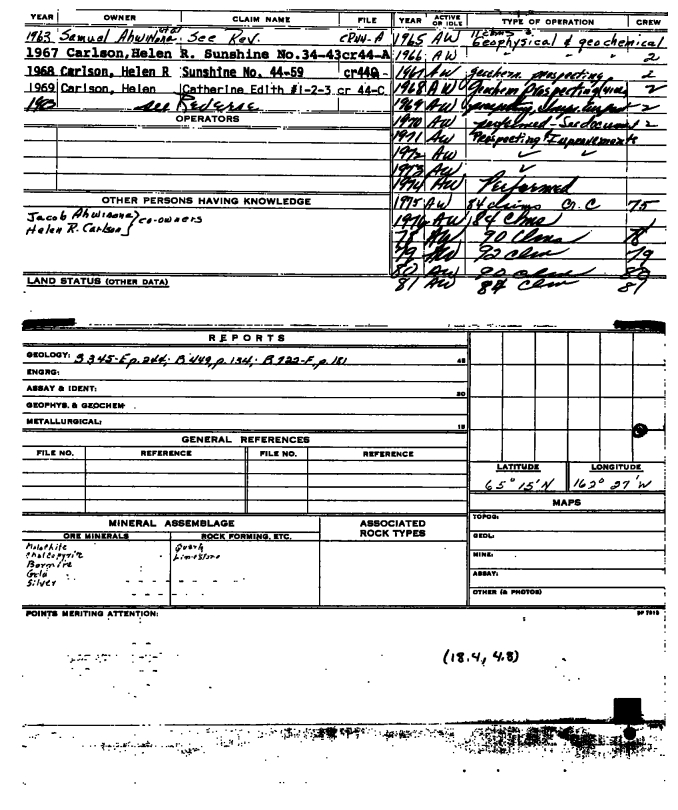 YEAR OWNER CLAIM NAME FILE
1963 Samuel Ahwinona et al See Rev. cr44-A
1967 Carlson, Helen R. Sunshine No.34-43 cr44-A
1968 Carlson, Helen R Sunshine No. 44-59 cr44
1969 Carlson, Helen Catherine Edith #1-2-3 cr 44-C
see Reverse
OPERATORS
OTHER PERSONS HAVING KNOWLEDGE
Jacob Ahwinona } co-owners
Helen R. Carlson
LAND STATUS (OTHER DATA)
YEAR ACTIVE OR IDLE TYPE OF OPERATION CREW
1965 AW Geophysical & geochemical
1966 AW " " 2
1967 AW geochem. prospecting 2
1968 AW Geochem Prospecting 2
1969 AW prospecting 2
1970 AW performed - See document 2
1971 AW Prospecting & Improvements
1972 AW ✓ ✓
1973 AW ✓
1974 AW Performed
1975 AW 84 claims 75
1976 AW 84 Clms
78 AW 90 Clms 78
79 AW 92 clm 79
80 AW 90 clm 80
81 AW 84 clm 81
REPORTS
GEOLOGY: B 345-E p. 244; B 449, p. 134; B 722-F, p. 181
ENGRG:
ASSAY & IDENT:
GEOPHYS. & GEOCHEM
METALLURGICAL:
GENERAL REFERENCES
FILE NO. REFERENCE FILE NO. REFERENCE
LATITUDE LONGITUDE
65° 15' N 162° 27' W
MAPS
TOPOG:
GEOL:
MINE:
ASSAY:
OTHER (& PHOTOS)
MINERAL ASSEMBLAGE ASSOCIATED ROCK TYPES
ORE MINERALS ROCK FORMING, ETC.
Malachite Quartz
Chalcopyrite Limestone
Bornite
Gold
Silver
POINTS MERITING ATTENTION:
(18.4, 4.8)